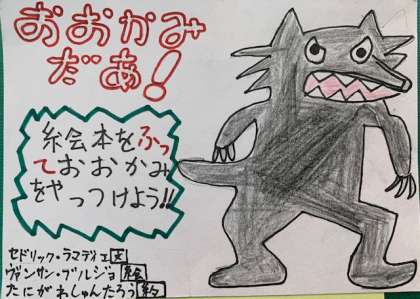 おおかみ
だあ!
絵本をふっ
ておおかみ
をやっつけよう!!
セドリック・ラマディエ 文
ヴァンサン・ブルジョ 絵
たにがわしゅんたろう 約